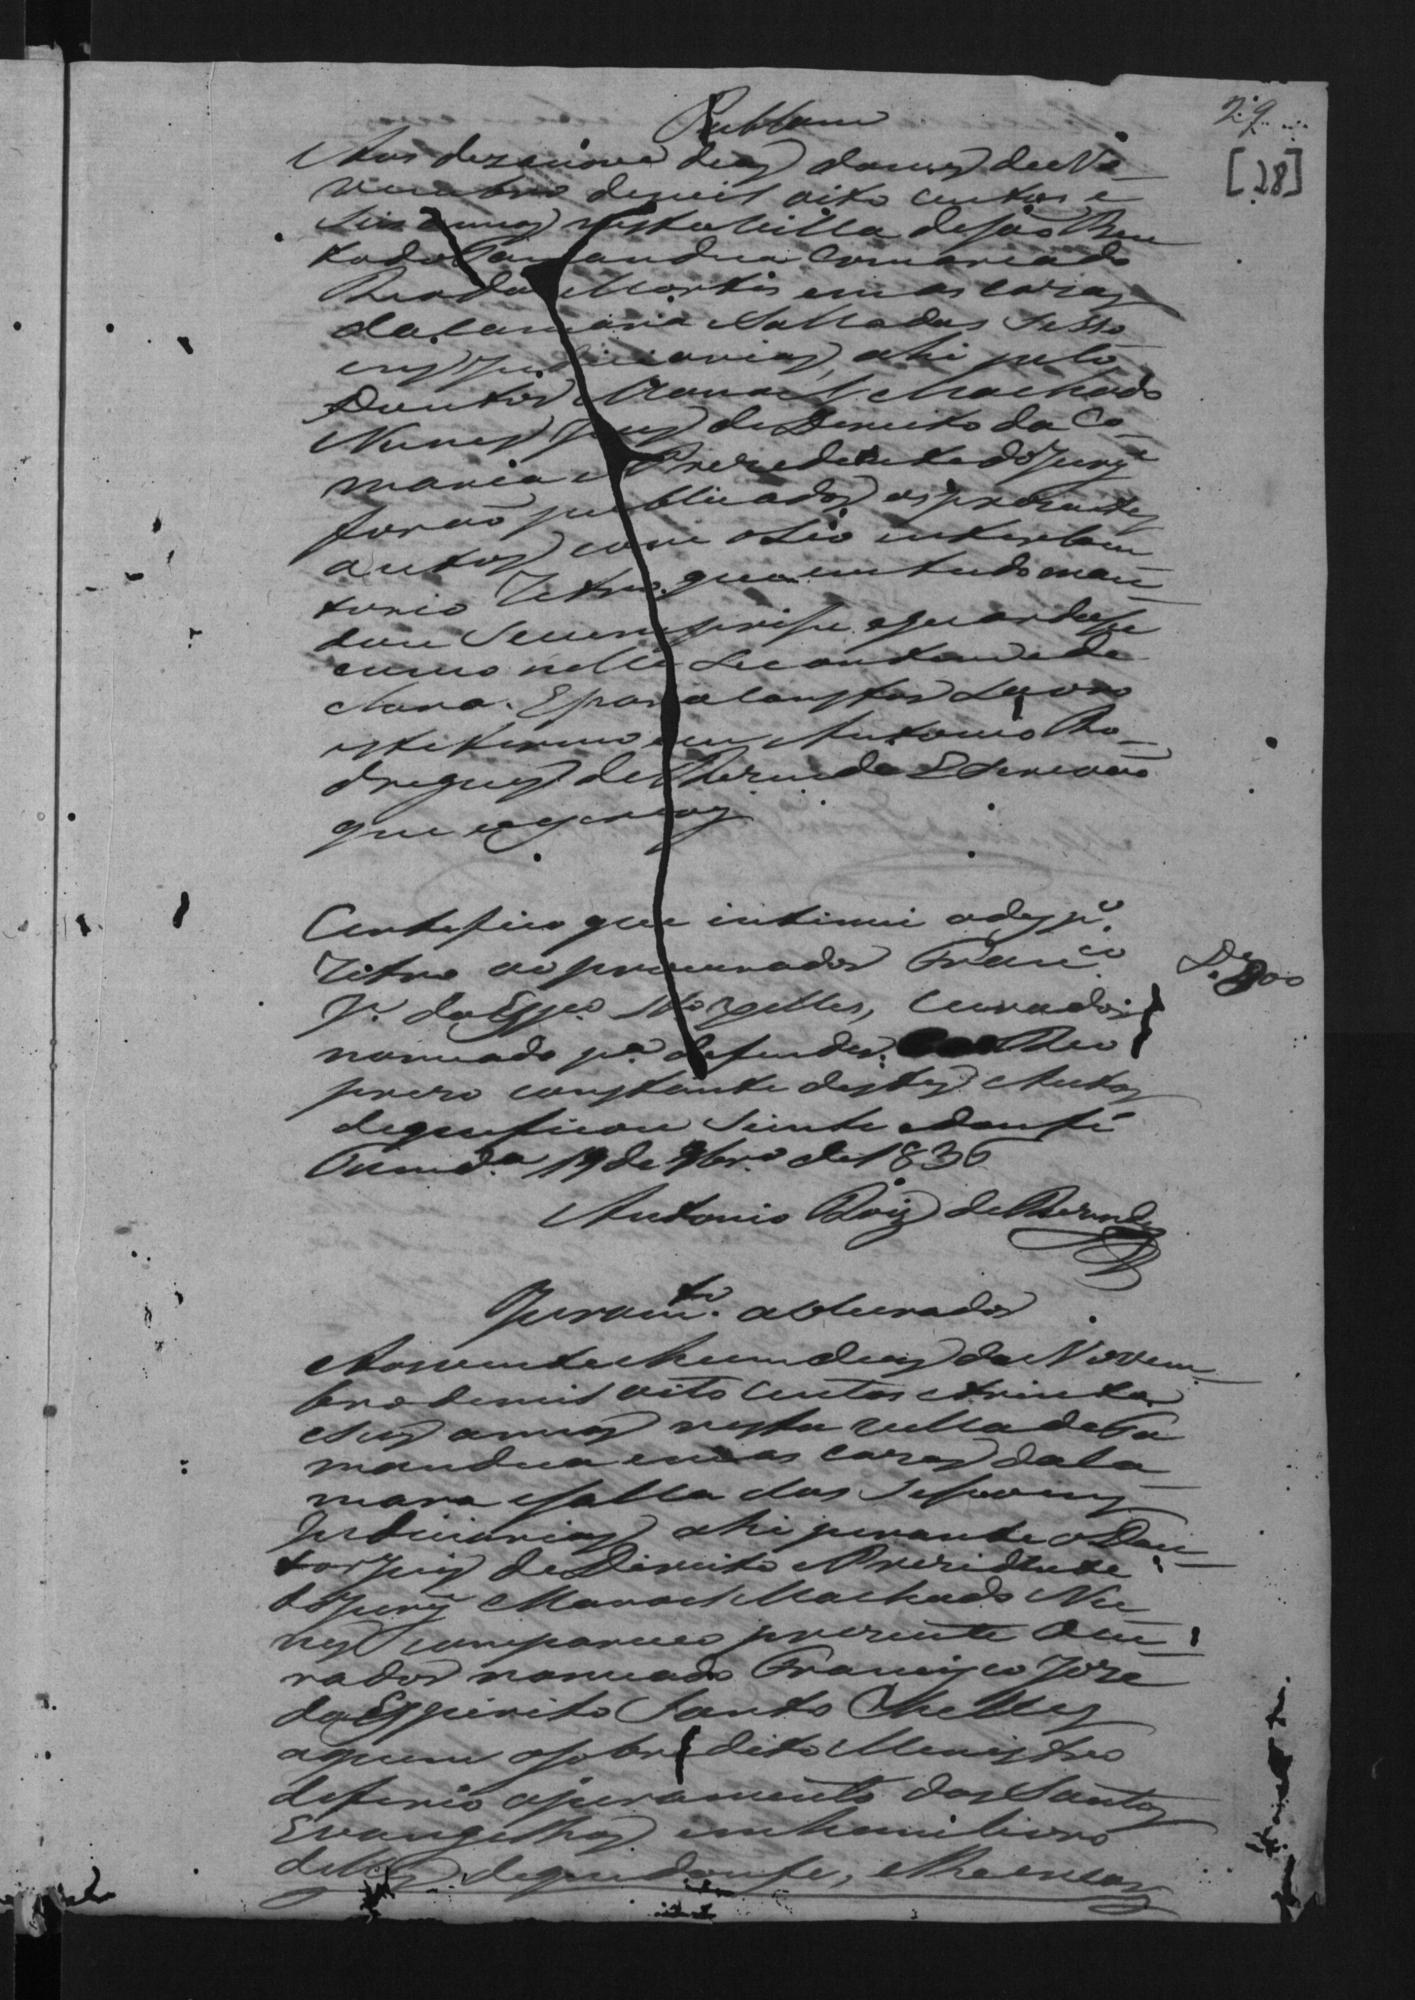 29
[28]
Publbam
Aos dezanove dias domes de No-
vembro demil oito centos e
Seis annos nesta Villa de São Ben
todo Tamandua Comarca do
Rio das Mortes em as cazas
da Camara e Salla das Sesso
ens Judiciarias, ahi pelo
Doutor Manoel Machado
Nunes Juiz de Direito da Co-
marca e Prezedente do Jury
forão publicados os prezentes
autos com o seo interlocu
torio retro que em tudo man
dou Secumprisse eguardasse
como nelle Secontem ede
clara. Epara constar Lavro
este termo eu Antonio Ro-
drigues de Miranda Escrivão
que o escrevy
Certefico que intimei odesp.º
retro ao procurador Fran.co
J.e do Esp.º S.to Xelles, Curador
nomeado p.a defender o Reo
prezo constante destes Autos
dequeficou Siente edoufé
Tamd.a 19 de 9br.o de 1836
Antonio Roiz de Miranda
Juram.to aoCurador
Aosvinte ehum dias de Novem-
bro demil oito centos etrinta
eseis annos nesta villa de Ta
mandua em as cazas da Ca-
mara eSalla das Sessoens
Judiciarias ahi perante o Dou-
tor Juiz de Direito e Prezidente
do Jury Manoel Machado Nu-
nes compareceo prezente o Cu-
rador nomeado Francisco Joze
do Espirito Santo Chelles
aquem osobre dito Menistro
deferio ojuramento dos Santos
Evangelhos em hum livro
delles dequedoufe, elheencar